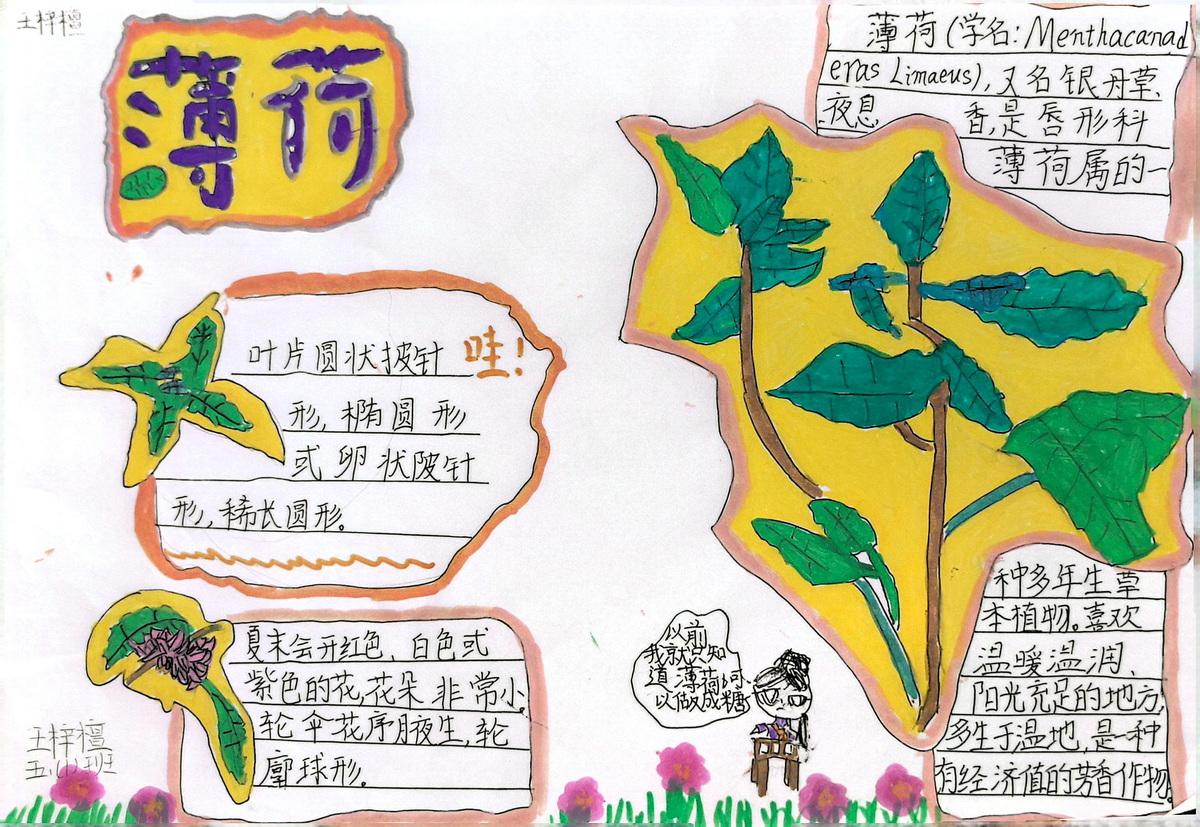 王梓檀
薄荷
薄荷(学名:Menthacanad
erasLimaeus),又名银丹草、
夜息香,是唇形科
薄荷属的一
种多年生草
本植物。喜欢
温暖温润、
阳光充足的地方,
多生于温地,是一种
有经济值的芳香作物。
叶片圆状披针
哇!
形,椭圆形
或卵状陂针
形,稀长圆形。
夏末会开红色、白色或
紫色的花,花朵非常小,
轮伞花序腋生,轮
廓球形。
以前
我就只知
道薄荷可
以做成糖
王梓檀
五.小班